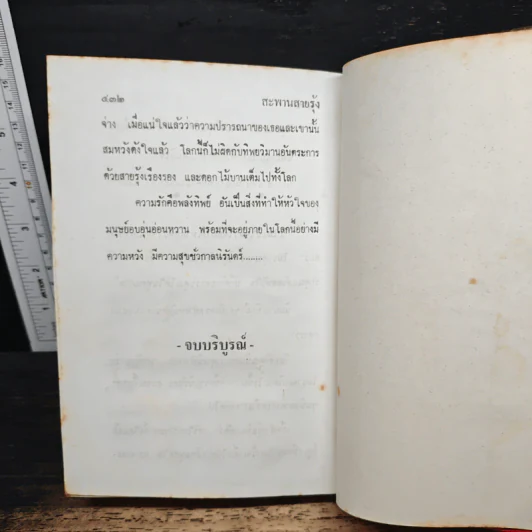 ๔๓๒ สะพานสายรุ้ง
จ่าง เมื่อแน่ใจแล้วว่าความปรารถนาของเธอและเขานั้น
สมหวังดังใจแล้ว โลกนี้ก็ไม่ผิดกับทิพยวิมานอันตระการ
ด้วยสายรุ้งเรืองรอง และดอกไม้บานเต็มไปทั้งโลก
ความรักคือพลังทิพย์ อันเป็นสิ่งที่ทำให้หัวใจของ
มนุษย์อบอุ่นอ่อนหวาน พร้อมที่จะอยู่ภายในโลกนี้อย่างมี
ความหวัง มีความสุขชั่วกาลนิรันดร์.......
- จบบริบูรณ์ -